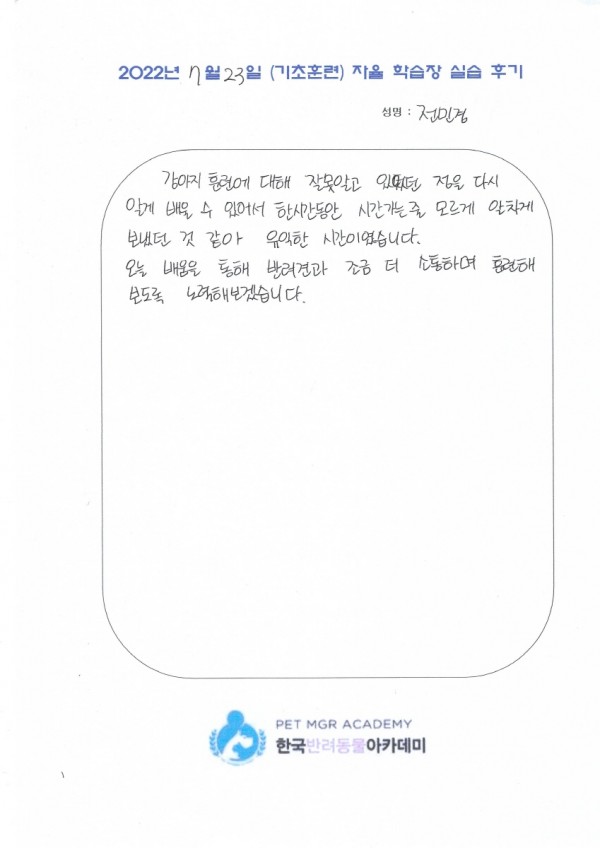 2022년 7월 23일 (기초훈련) 자율 학습장 실습 후기
성명 : 전민경
강아지 훈련에 대해 잘못알고 있었던 점을 다시
알게 배울 수 있어서 한시간동안 시간가는줄 모르게 알차게
보냈던 것 같아 유익한 시간이였습니다.
오늘 배움을 통해 반려견과 조금 더 소통하며 훈련해
보도록 노력해보겠습니다.
PET MGR ACADEMY
한국반려동물아카데미